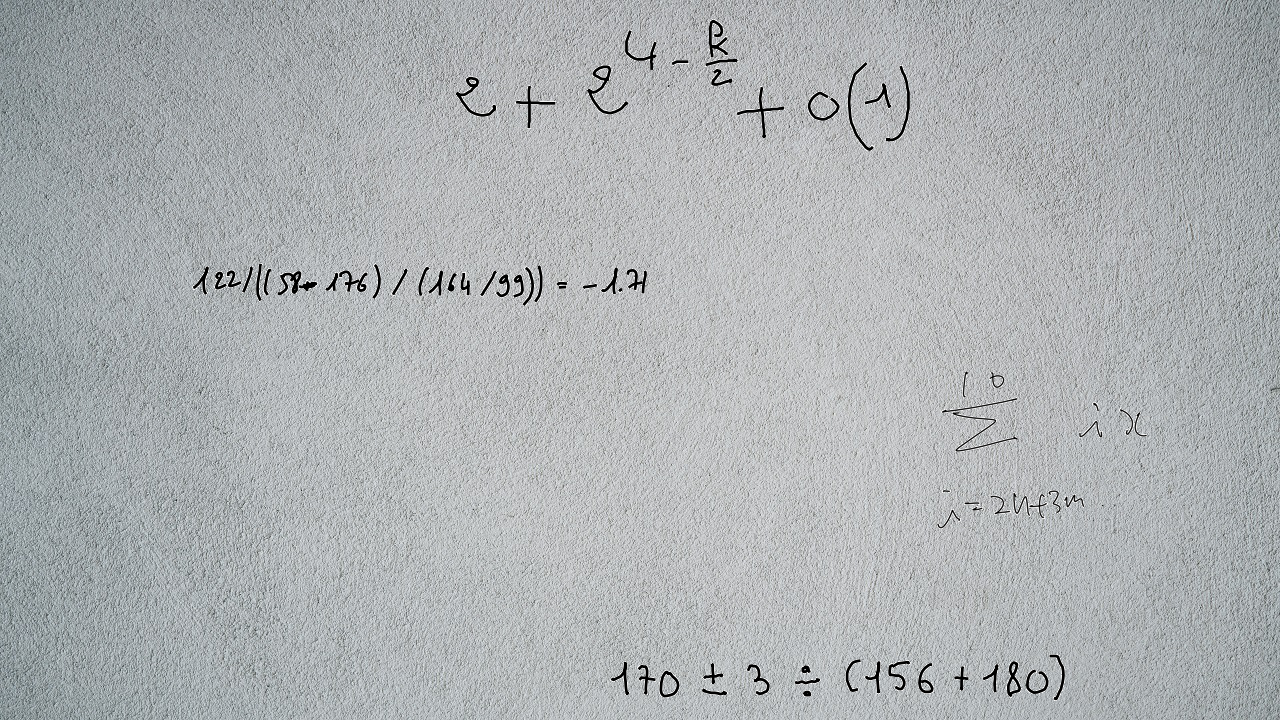 2 + 2^{4 - \frac{k}{2}} + o(1)
122/((58-176) / (164/99)) = -1.71
\sum_{i=2n+3m}^{10} ix
170 ± 3 ÷ (156 + 180)